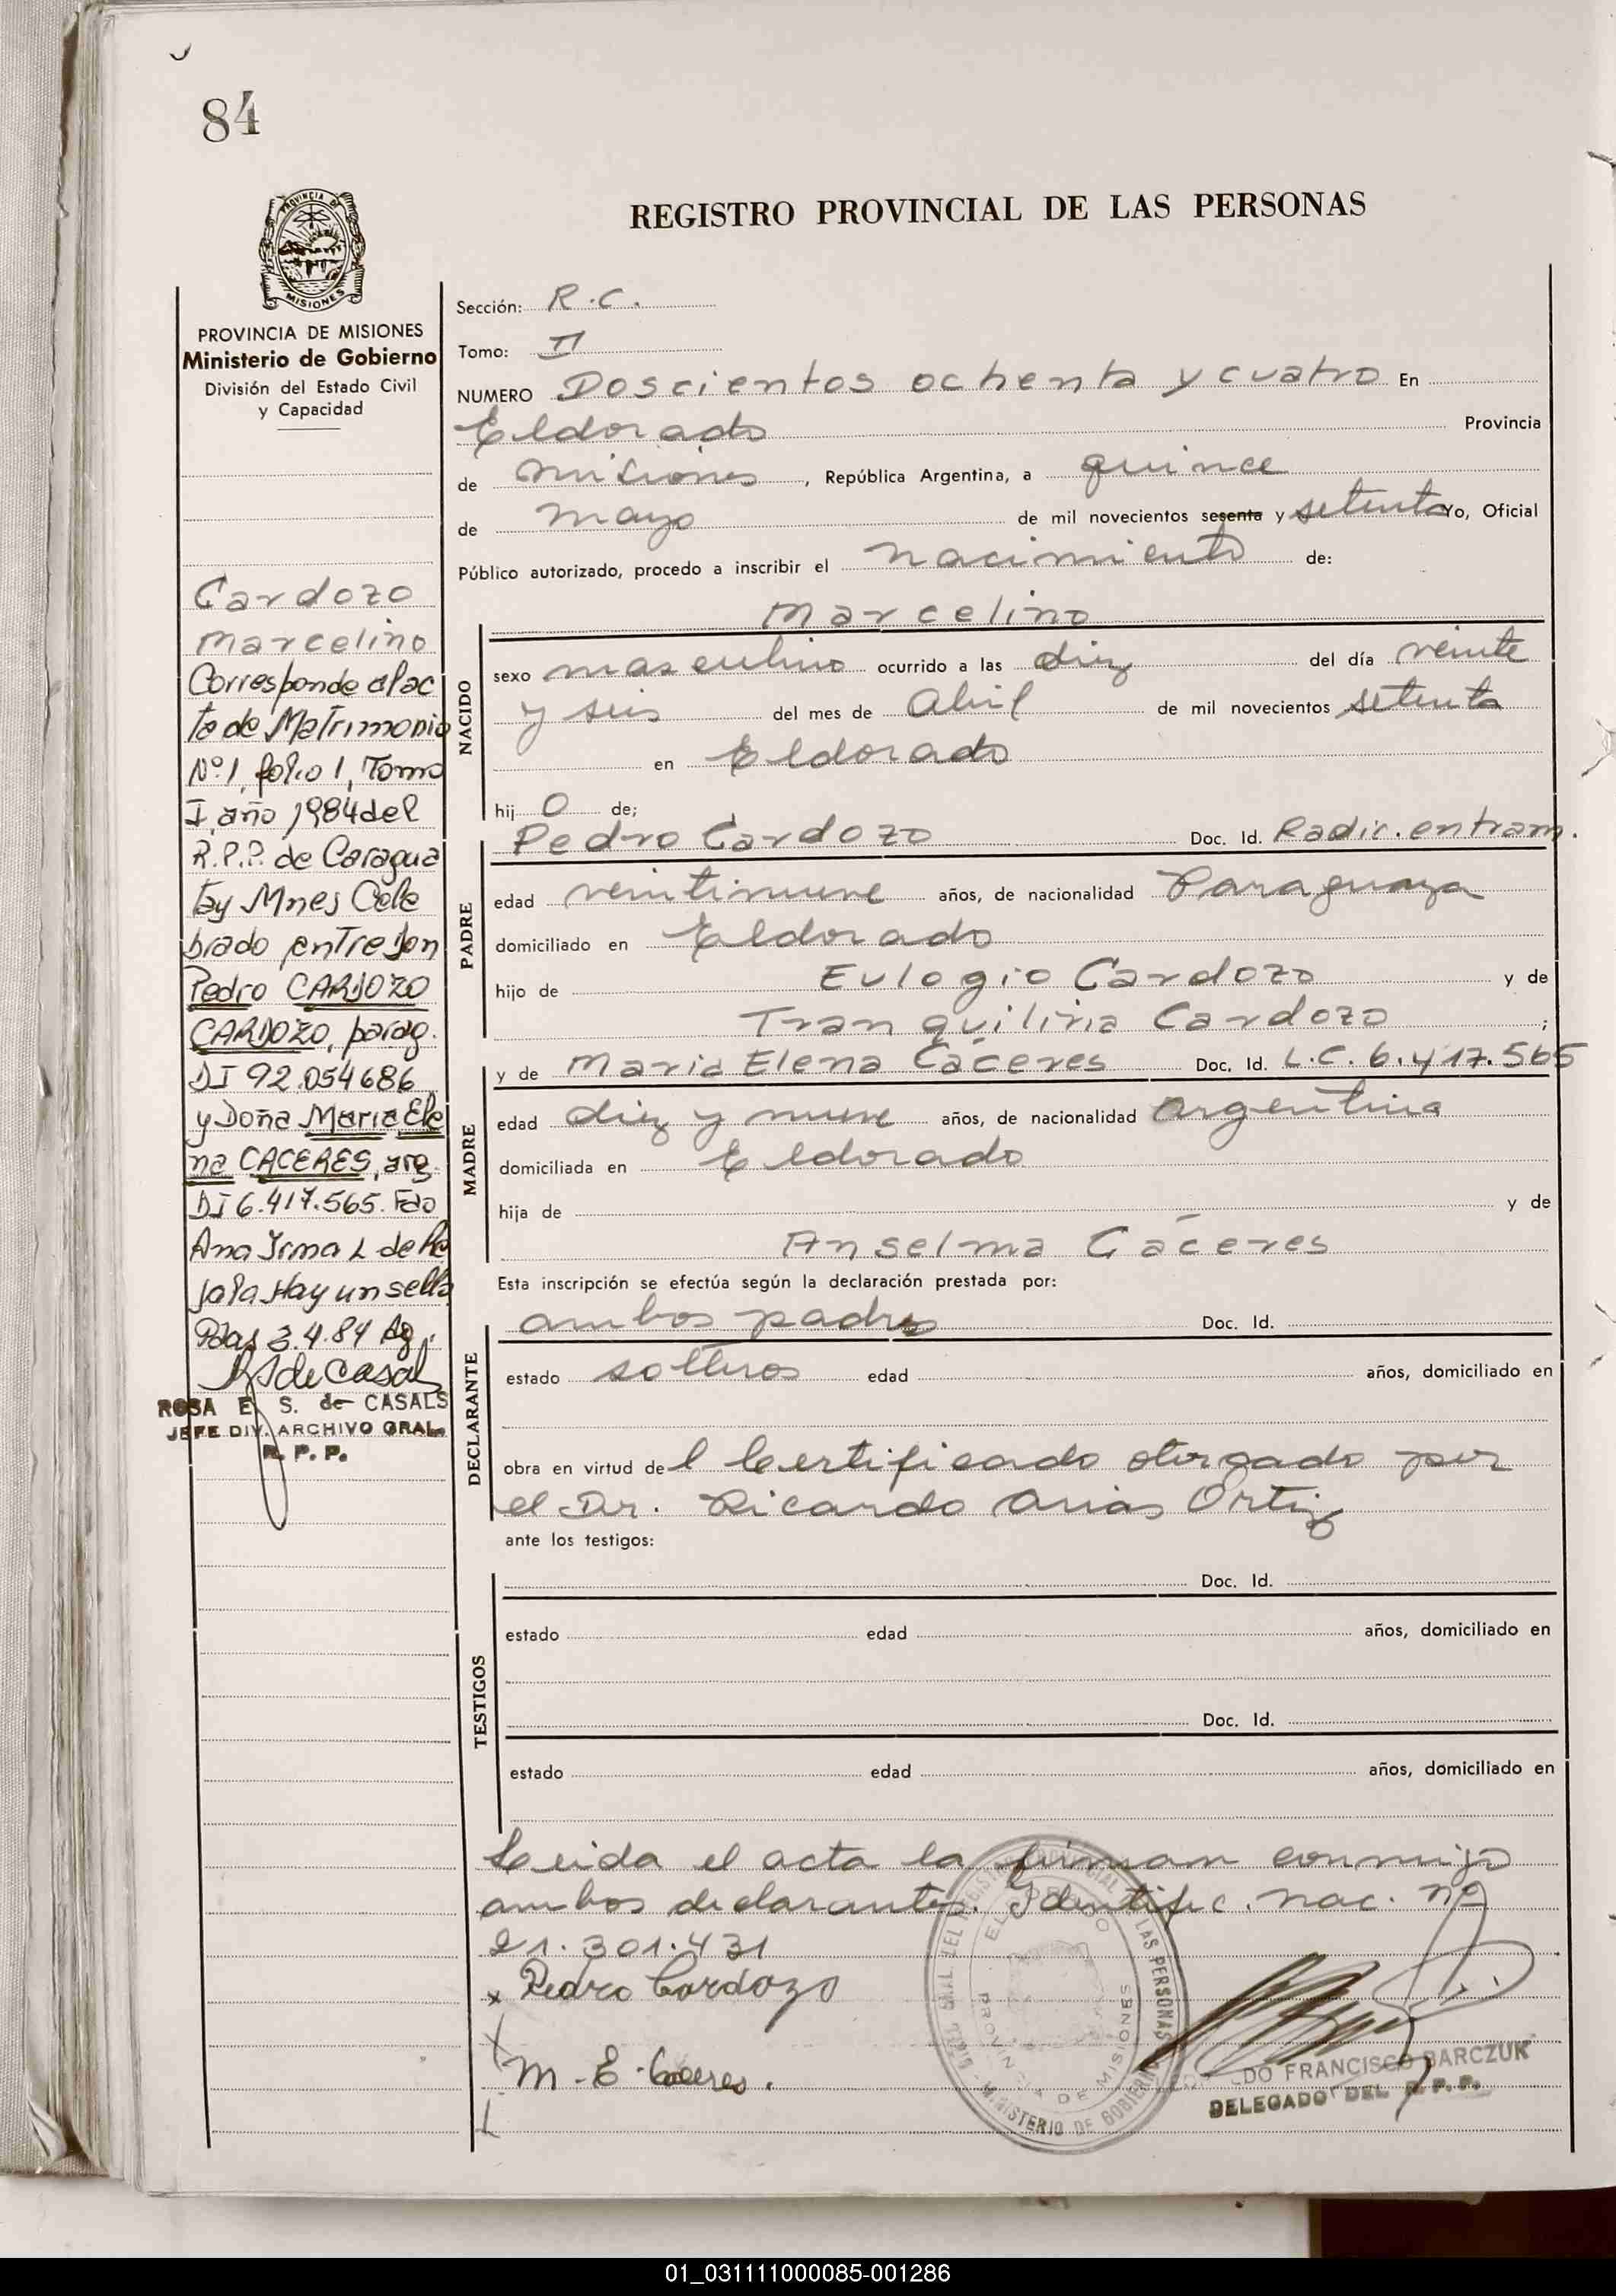 84
PROVINCIA DE
MISIONES
REGISTRO PROVINCIAL DE LAS PERSONAS
PROVINCIA DE MISIONES
Ministerio de Gobierno
División del Estado Civil
y Capacidad
Cardozo
Marcelino
Corresponde al ac
ta de Matrimonio
Nº 1, folio 1, Tomo
I, año 1984 del
R.P.P. de Caragua
tay Mnes Cele
brado entre Don
Pedro CARDOZO
CARDOZO, parag.
DI 92.054686
y Doña Maria Ele
na CACERES, arg.
DI 6.417.565. Fdo
Ana Irma L de
Hay un sello
Pdas 3.4.84
R S de Casals
ROSA E. S. de CASALS
JEFE DIV. ARCHIVO GRAL.
R. P. P.
Sección: R.C.
Tomo: II
NUMERO Doscientos ochenta y cuatro En
Eldorado Provincia
de Misiones, República Argentina, a quince
de mayo de mil novecientos sesenta y setenta Yo, Oficial
Público autorizado, procedo a inscribir el nacimiento de:
Marcelino
NACIDO
sexo masculino ocurrido a las diez del día veinte
y seis del mes de Abril de mil novecientos setenta
en Eldorado
hij o de;
Pedro Cardozo Doc. Id. Radic. en tram.
PADRE
edad veintinueve años, de nacionalidad Paraguaya
domiciliado en Eldorado
hijo de Eulogio Cardozo y de
Tranquilina Cardozo ;
y de Maria Elena Cáceres Doc. Id. L.C. 6.417.565
MADRE
edad diez y nueve años, de nacionalidad Argentina
domiciliada en Eldorado
hija de y de
Anselma Cáceres
Esta inscripción se efectúa según la declaración prestada por:
ambos padres Doc. Id.
DECLARANTE
estado solteros edad años, domiciliado en
obra en virtud del Certificado otorgado por
el Dr. Ricardo Arias Ortiz
ante los testigos:
TESTIGOS
Doc. Id.
estado edad años, domiciliado en
Doc. Id.
estado edad años, domiciliado en
Leida el acta la firman conmigo
ambos declarantes. Identific. nac. nº
21.301.431
x Pedro Cardozo
M. E. Caceres.
ELDORADO
PROVINCIA DE MISIONES
MINISTERIO DE GOBIERNO
LAS PERSONAS
DO FRANCISCO BARCZUK
DELEGADO DEL R.P.P.
01_031111000085-001286